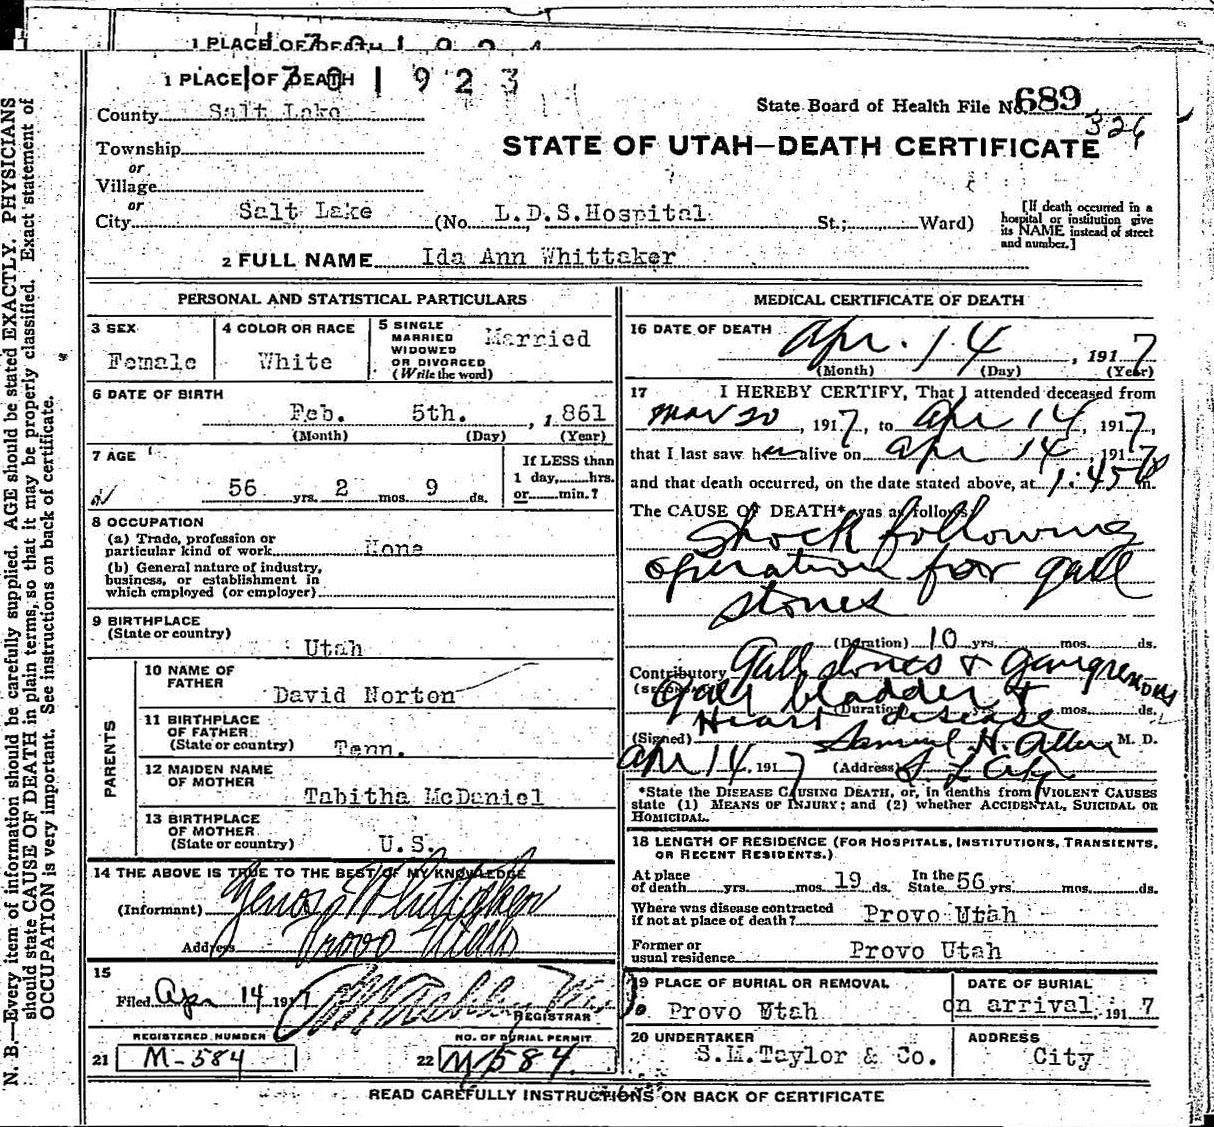 1 PLACE OF DEATH 1 9 2 4
1 PLACE OF DEATH 1 9 2 3
County Salt Lake
State Board of Health File No. 689
326
Township
or
Village
or
STATE OF UTAH—DEATH CERTIFICATE
City Salt Lake (No. L.D.S. Hospital St.; Ward)
[If death occurred in a hospital or institution give its NAME instead of street and number.]
2 FULL NAME Ida Ann Whittaker
PERSONAL AND STATISTICAL PARTICULARS
3 SEX
Female
4 COLOR OR RACE
White
5 SINGLE
MARRIED
WIDOWED
OR DIVORCED
(Write the word)
Married
6 DATE OF BIRTH
Feb. 5th. , 1861
(Month) (Day) (Year)
7 AGE
56 yrs. 2 mos. 9 ds.
If LESS than
1 day, hrs.
or min.?
8 OCCUPATION
(a) Trade, profession or
particular kind of work None
(b) General nature of industry,
business, or establishment in
which employed (or employer)
9 BIRTHPLACE
(State or country)
Utah
PARENTS
10 NAME OF
FATHER
David Norton
11 BIRTHPLACE
OF FATHER
(State or country) Tenn.
12 MAIDEN NAME
OF MOTHER
Tabitha McDaniel
13 BIRTHPLACE
OF MOTHER
(State or country) U.S.
14 THE ABOVE IS TRUE TO THE BEST OF MY KNOWLEDGE
(Informant) Whittaker
Address Provo Utah
15
Filed Apr 14 1917
REGISTRAR
REGISTERED NUMBER
21 M-584
NO. OF BURIAL PERMIT
22 M584
MEDICAL CERTIFICATE OF DEATH
16 DATE OF DEATH
Apr. 14 , 1917
(Month) (Day) (Year)
17 I HEREBY CERTIFY, That I attended deceased from
Mar 20 , 1917, to Apr 14, 1917,
that I last saw her alive on Apr 14, 1917
and that death occurred, on the date stated above, at 1:45 P m.
The CAUSE OF DEATH* was as follows:
Shock following
operation for gall
stones
(Duration) 10 yrs. mos. ds.
Contributory Gall stones + Gangrenous
(SECONDARY) Gall bladder +
Heart disease
(Duration) yrs. mos. ds.
(Signed) Samuel H. Allen M. D.
Apr 14, 1917 (Address) S. L. City
*State the DISEASE CAUSING DEATH, or, in deaths from VIOLENT CAUSES
state (1) MEANS OF INJURY; and (2) whether ACCIDENTAL, SUICIDAL OR
HOMICIDAL.
18 LENGTH OF RESIDENCE (FOR HOSPITALS, INSTITUTIONS, TRANSIENTS,
OR RECENT RESIDENTS.)
At place
of death yrs. mos. 19 ds. In the State 56 yrs. mos. ds.
Where was disease contracted
if not at place of death? Provo Utah
Former or
usual residence Provo Utah
19 PLACE OF BURIAL OR REMOVAL
Provo Utah
DATE OF BURIAL
on arrival, 1917
20 UNDERTAKER
S.M.Taylor & Co.
ADDRESS
City
READ CAREFULLY INSTRUCTIONS ON BACK OF CERTIFICATE
N. B.—Every item of information should be carefully supplied. AGE should be stated EXACTLY. PHYSICIANS
should state CAUSE OF DEATH in plain terms, so that it may be properly classified. Exact statement of
OCCUPATION is very important. See instructions on back of certificate.